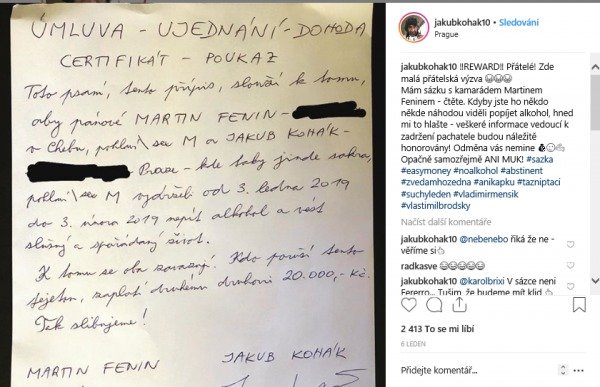 ÚMLUVA - UJEDNÁNÍ - DOHODA
CERTIFIKÁT - POUKAZ
Toto psaní, tento přípis, slouží k tomu,
aby pánové MARTIN FENIN -
v Chebu, pohlaví/sex M a JAKUB KOHÁK -
Praze - kde taky jinde sakra,
pohlaví/sex M vydrželi od 3. ledna 2019
do 3. února 2019 nepít alkohol a vést
slušný a spořádaný život.
K tomu se oba zavazují. Kdo poruší tento
, zaplatí druhému druhovi 20.000,- Kč.
Tak slibujeme!
MARTIN FENIN JAKUB KOHÁK
jakubkohak10 • Sledování
Prague
jakubkohak10 !!REWARD!! Přátelé! Zde
malá přátelská výzva 😂😂😂
Mám sázku s kamarádem Martinem
Feninem - čtěte. Kdybyste ho někdo
někde náhodou viděli popíjet alkohol, hned
mi to hlašte - veškeré informace vedoucí k
zadržení pachatele budou náležitě
honorovány! Odměna vás nemine
Opačně samozřejmě ANI MUK! #sazka
#easymoney #noalkohol #abstinent
#zvedamhozedna #anikapku #tazniptaci
#suchyleden #vladimirmensik
#vlastimilbrodsky
Načíst další komentáře
jakubkohak10 @nebenebo říká že ne -
věříme si
radkasve 😂😂😂😂
jakubkohak10 @karolbrixi V sázce není
Fererro... Tuším, že budeme mít klid
2 413 To se mi líbí
6 LEDEN
Přidejte komentář...